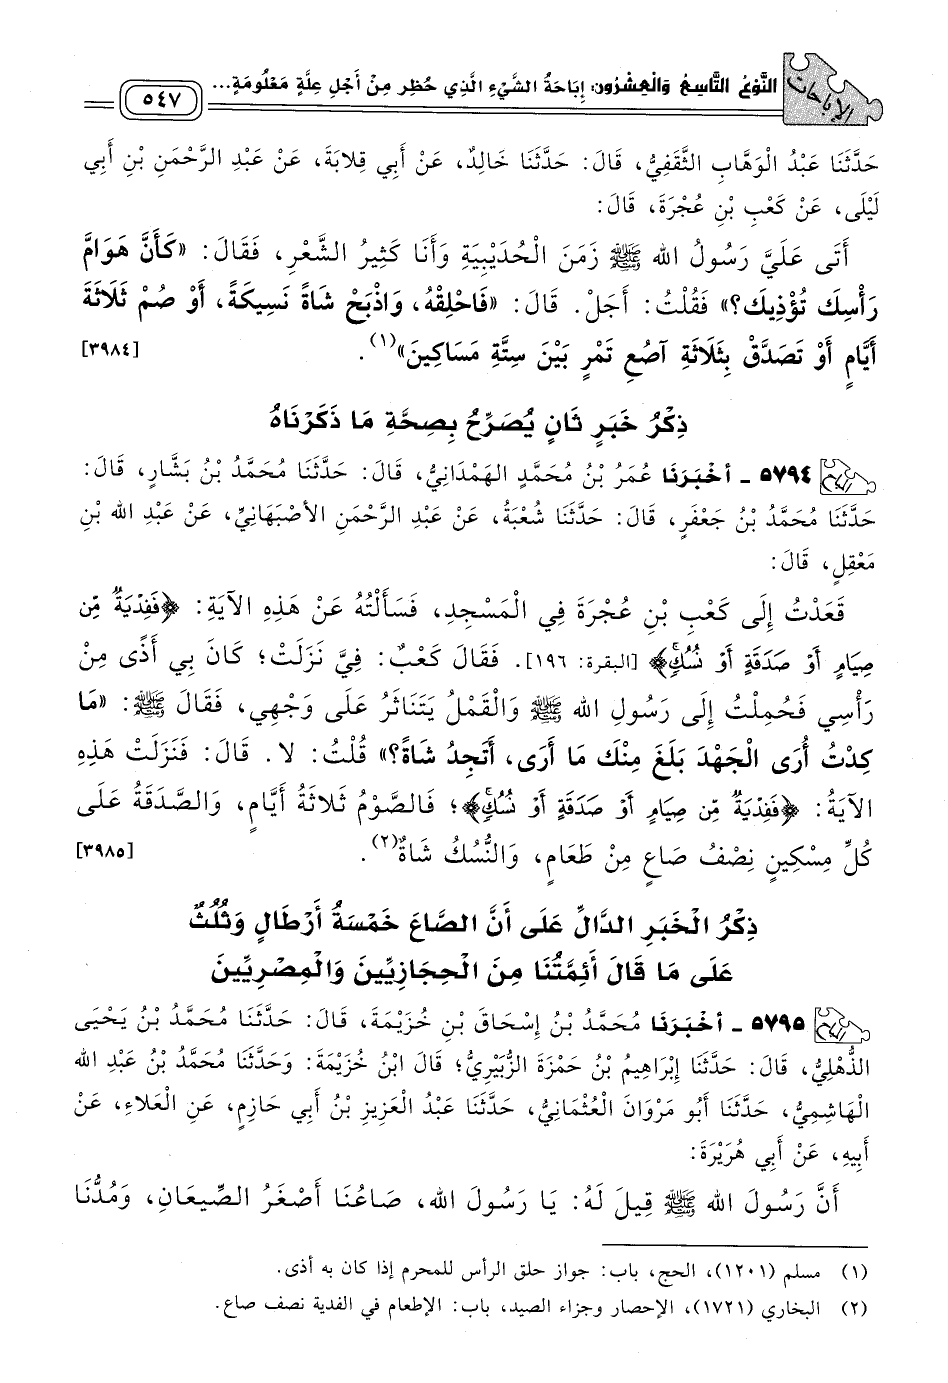 الإباحات
النَّوْعُ التَّاسِعُ وَالْعِشْرُونَ: إِبَاحَةُ الشَّيْءِ الَّذِي حُظِر مِنْ أَجْلِ عِلَّةٍ مَعْلُومَةٍ...
٥٤٧
حَدَّثَنَا عَبْدُ الْوَهَّابِ الثَّقَفِيُّ، قَالَ: حَدَّثَنَا خَالِدٌ، عَنْ أَبِي قِلَابَةَ، عَنْ عَبْدِ الرَّحْمَنِ بْنِ أَبِي
لَيْلَى، عَنْ كَعْبِ بْنِ عُجْرَةَ، قَالَ:
أَتَى عَلَيَّ رَسُولُ الله ﷺ زَمَنَ الْحُدَيْبِيَةِ وَأَنَا كَثِيرُ الشَّعْرِ، فَقَالَ: «كَأَنَّ هَوَامَّ
رَأْسِكَ تُؤْذِيكَ؟» فَقُلْتُ: أَجَلْ. قَالَ: «فَاحْلِقْهُ، وَاذْبَحْ شَاةً نَسِيكَةً، أَوْ صُمْ ثَلَاثَةَ
أَيَّامٍ أَوْ تَصَدَّقْ بِثَلَاثَةِ آصُعِ تَمْرٍ بَيْنَ سِتَّةِ مَسَاكِينَ»(١). [٣٩٨٤]
ذِكْرُ خَبَرٍ ثَانٍ يُصَرِّحُ بِصِحَّةِ مَا ذَكَرْنَاهُ
٥٧٩٤ - أَخْبَرَنَا عُمَرُ بْنُ مُحَمَّدٍ الهَمْدَانِيُّ، قَالَ: حَدَّثَنَا مُحَمَّدُ بْنُ بَشَّارٍ، قَالَ:
حَدَّثَنَا مُحَمَّدُ بْنُ جَعْفَرٍ، قَالَ: حَدَّثَنَا شُعْبَةُ، عَنْ عَبْدِ الرَّحْمَنِ الأَصْبَهَانِيِّ، عَنْ عَبْدِ الله بْنِ
مَعْقِلٍ، قَالَ:
قَعَدْتُ إِلَى كَعْبِ بْنِ عُجْرَةَ فِي الْمَسْجِدِ، فَسَأَلْتُهُ عَنْ هَذِهِ الآيَةِ: ﴿فَفِدْيَةٌ مِّن
صِيَامٍ أَوْ صَدَقَةٍ أَوْ نُسُكٍ﴾ [البقرة: ١٩٦]. فَقَالَ كَعْبٌ: فِيَّ نَزَلَتْ؛ كَانَ بِي أَذًى مِنْ
رَأْسِي فَحُمِلْتُ إِلَى رَسُولِ الله ﷺ وَالْقَمْلُ يَتَنَاثَرُ عَلَى وَجْهِي، فَقَالَ ﷺ: «مَا
كِدْتُ أُرَى الْجَهْدَ بَلَغَ مِنْكَ مَا أَرَى، أَتَجِدُ شَاةً؟» قُلْتُ: لا. قَالَ: فَنَزَلَتْ هَذِهِ
الآيَةُ: ﴿فَفِدْيَةٌ مِّن صِيَامٍ أَوْ صَدَقَةٍ أَوْ نُسُكٍ﴾؛ فَالصَّوْمُ ثَلَاثَةُ أَيَّامٍ، وَالصَّدَقَةُ عَلَى
كُلِّ مِسْكِينٍ نِصْفُ صَاعٍ مِنْ طَعَامٍ، وَالنُّسُكُ شَاةٌ(٢). [٣٩٨٥]
ذِكْرُ الْخَبَرِ الدَّالِّ عَلَى أَنَّ الصَّاعَ خَمْسَةُ أَرْطَالٍ وَثُلُثٌ
عَلَى مَا قَالَ أَئِمَّتُنَا مِنَ الْحِجَازِيِّينَ وَالْمِصْرِيِّينَ
٥٧٩٥ - أَخْبَرَنَا مُحَمَّدُ بْنُ إِسْحَاقَ بْنِ خُزَيْمَةَ، قَالَ: حَدَّثَنَا مُحَمَّدُ بْنُ يَحْيَى
الذُّهْلِيُّ، قَالَ: حَدَّثَنَا إِبْرَاهِيمُ بْنُ حَمْزَةَ الزُّبَيْرِيُّ؛ قَالَ ابْنُ خُزَيْمَةَ: وَحَدَّثَنَا مُحَمَّدُ بْنُ عَبْدِ الله
الْهَاشِمِيُّ، حَدَّثَنَا أَبُو مَرْوَانَ الْعُثْمَانِيُّ، حَدَّثَنَا عَبْدُ الْعَزِيزِ بْنُ أَبِي حَازِمٍ، عَنِ الْعَلَاءِ، عَنْ
أَبِيهِ، عَنْ أَبِي هُرَيْرَةَ:
أَنَّ رَسُولَ الله ﷺ قِيلَ لَهُ: يَا رَسُولَ الله، صَاعُنَا أَصْغَرُ الصِّيعَانِ، وَمُدُّنَا
(١) مسلم (١٢٠١)، الحج، باب: جواز حلق الرأس للمحرم إذا كان به أذى.
(٢) البخاري (١٧٢١)، الإحصار وجزاء الصيد، باب: الإطعام في الفدية نصف صاع.